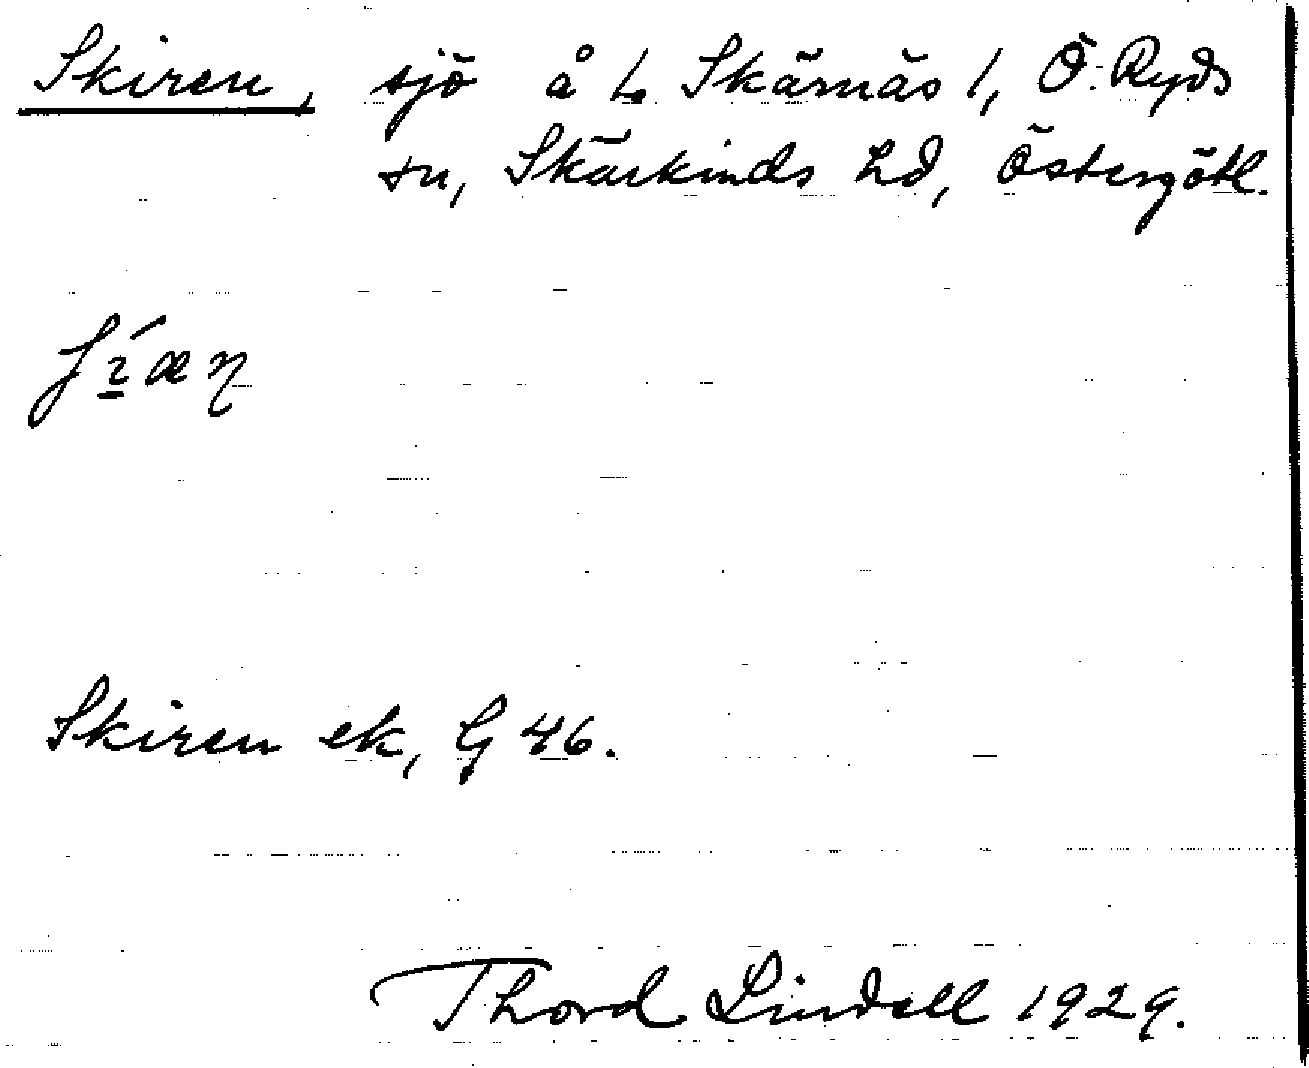 Skiren, sjö å L. Skärnäs 1, Ö. Ryds
sn, Skärkinds hd, Östergötl.
Skiren ek, G 46.
Thord Lindell 1929.